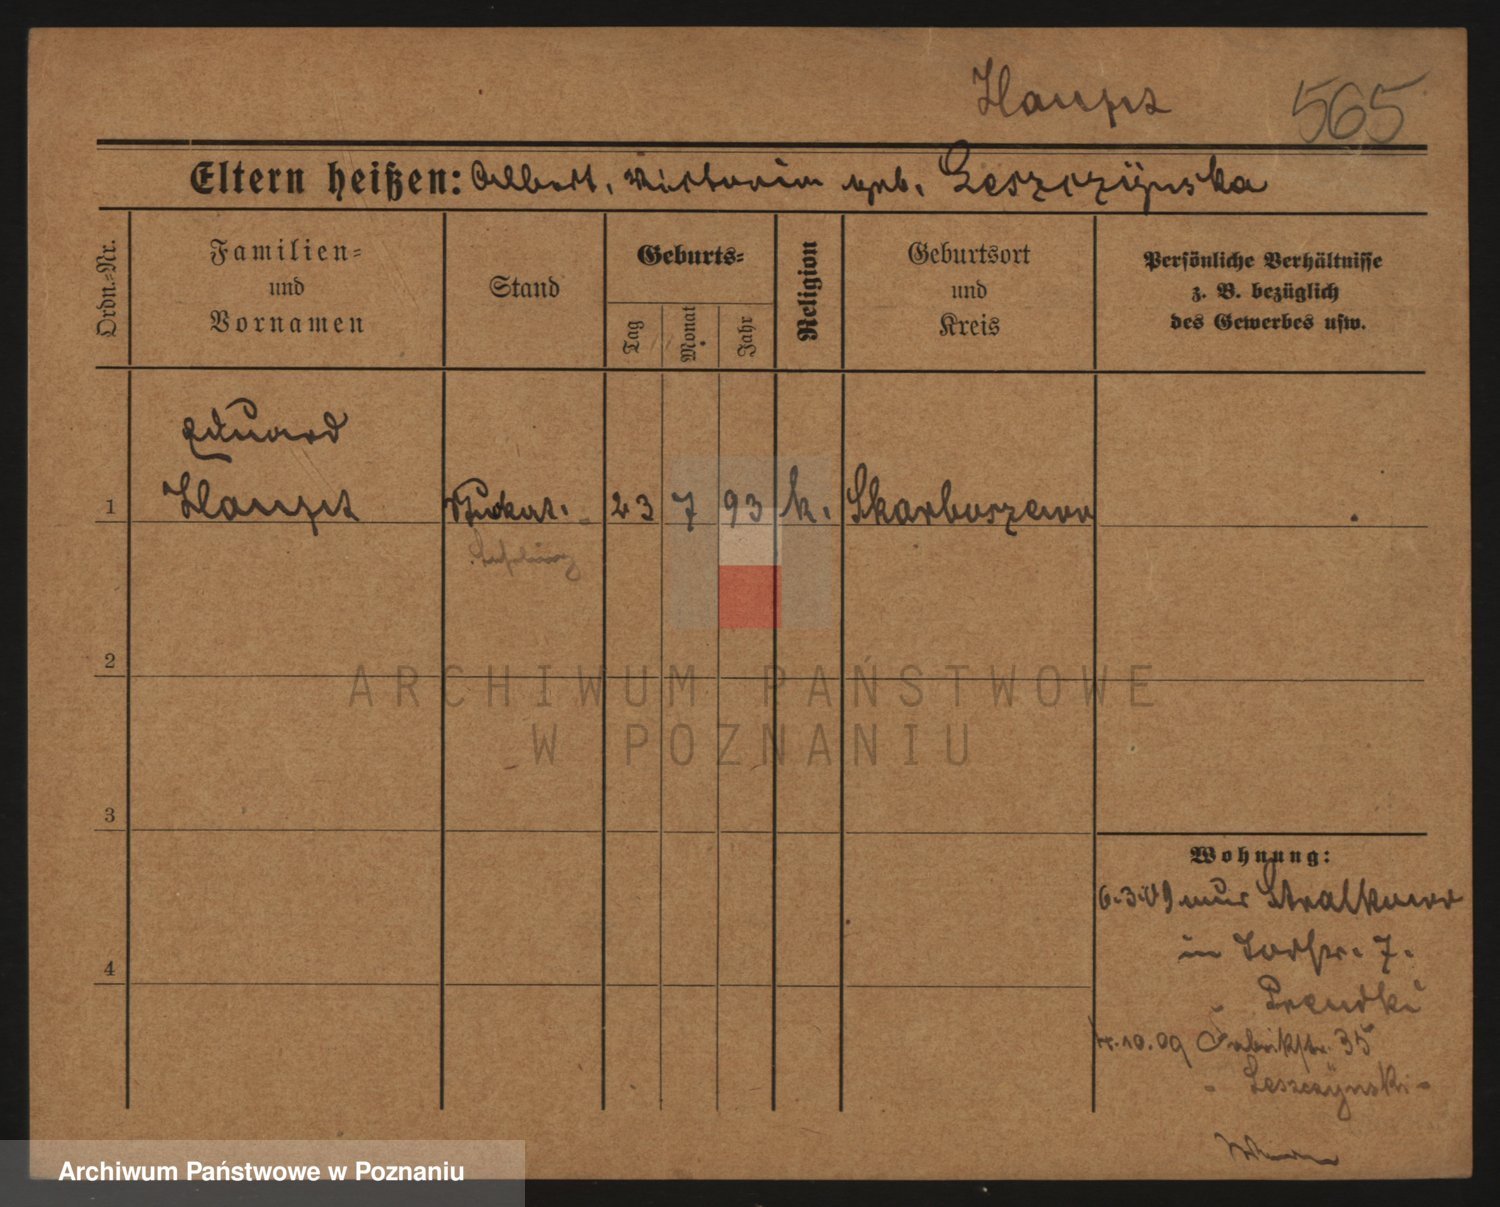 Haupt 565
Eltern heißen: Albert, Victoria geb. Leszczÿnska
Ordn.=Nr.
Familien=
und
Vornamen
Stand
Geburts=
Tag
Monat
Jahr
Religion
Geburtsort
und
Kreis
Persönliche Verhältnisse
z. B. bezüglich
des Gewerbes usw.
Eduard
1 Haupt Stukat. 23 7 93 k. Skarboszewo
Lehrling
2
ARCHIWUM PAŃSTWOWE
W POZNANIU
3
Wohnung:
6.3.09 aus Stralkowo
in Torstr. 7.
4
10.09 Fabrikstr. 35
- Leszczÿnski -
Archiwum Państwowe w Poznaniu